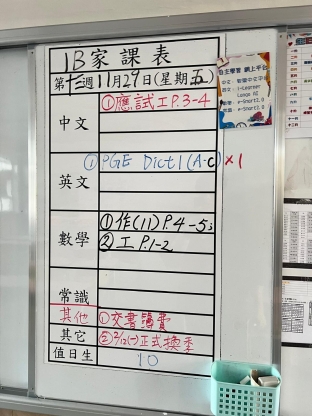 1B家課表
第十三週11月29日(星期五)
中文
①應試工P.3-4
英文
①PGE Dict 1 (A-C) ×1
數學
①作(11)P.4-5
②工P.1-2
常識
其他
①交書簿費
其它
②2/12(一)正式換季
值日生
10
自主學習 網上平台